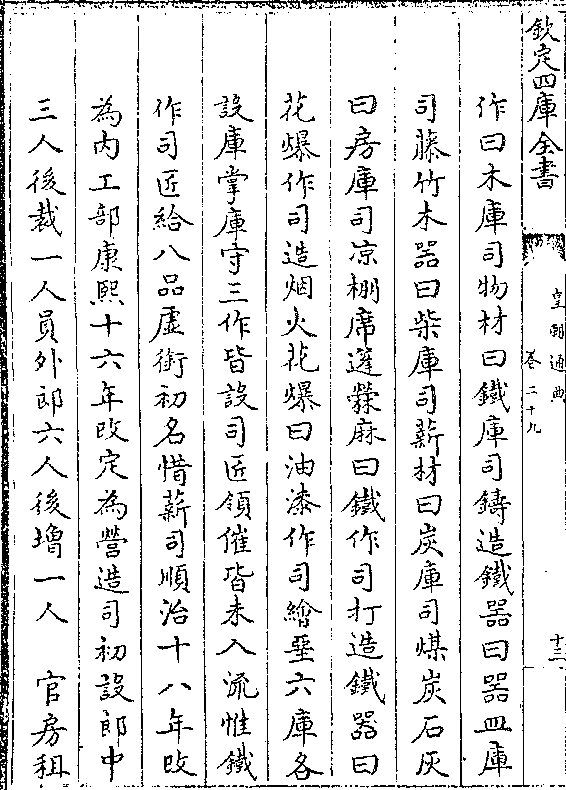 欽定四庫全書
皇朝通典
卷二十九
十三
作曰木庫司物材曰鐵庫司鑄造鐵器曰器皿庫
司藤竹木器曰柴庫司薪材曰炭庫司煤炭石灰
曰房庫司凉棚席箑檾麻曰鐵作司打造鐵器曰
花爆作司造烟火花爆曰油漆作司繪堊六庫各
設庫掌庫守三作皆設司匠領催皆未入流惟鐵
作司匠給八品虛銜初名惜薪司順治十八年改
為内工部康熙十六年改定為營造司初設郎中
三人後裁一人員外郎六人後増一人　官房租